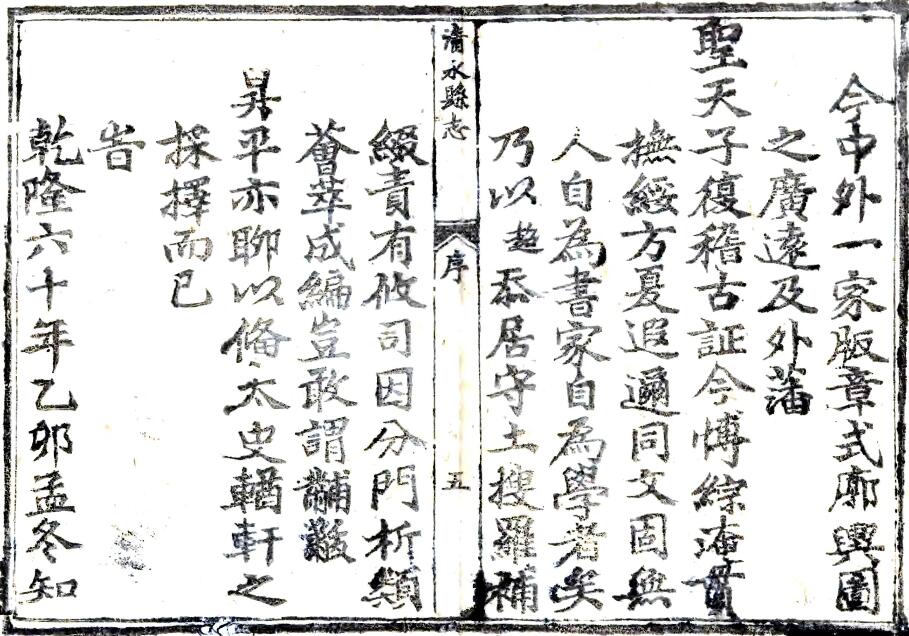 今中外一家版章式廓輿圖
之廣遠及外藩
聖天子復稽古証今愽綜淹貫
撫綏方夏遐邇同文固無
人自為書家自為學者矣
乃以趂忝居守土搜羅補
清水縣志
序
五
綴責有攸司因分門析類
薈萃成編豈敢謂黼黻
昇平亦聊以俻太史輶軒之
採擇而已
旹
乾隆六十年乙卯孟冬知